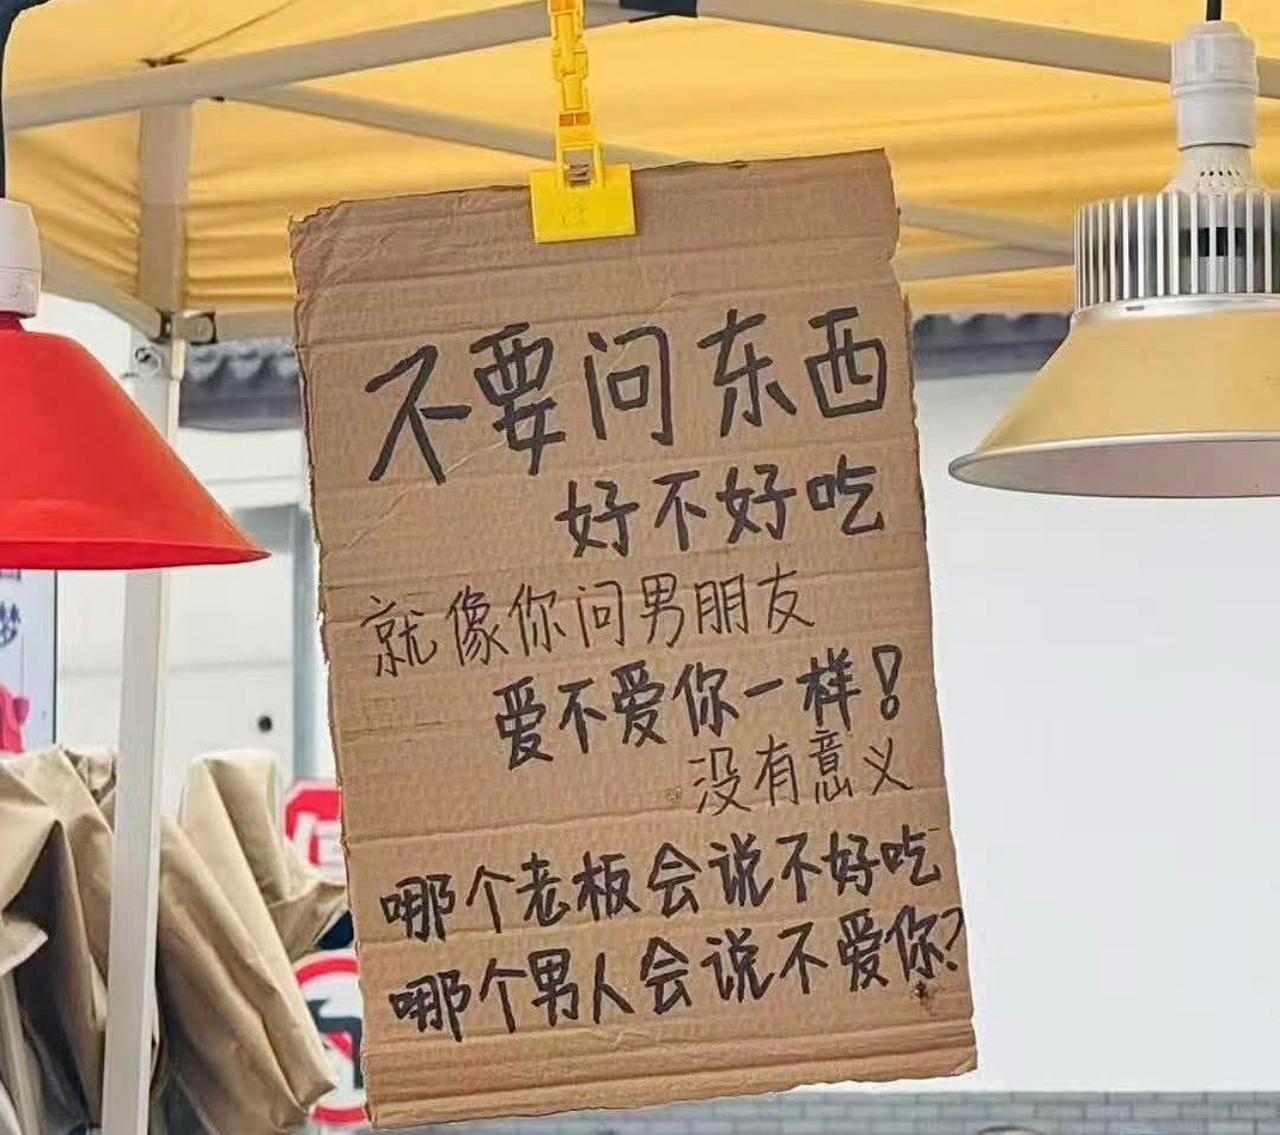 不要问东西
好不好吃
就像你问男朋友
爱不爱你一样!
没有意义
哪个老板会说不好吃
哪个男人会说不爱你?